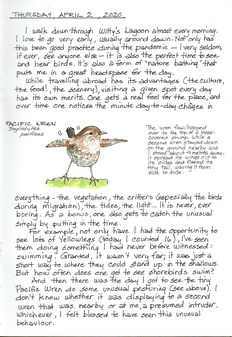 THURSDAY, APRIL 2, 2020
I walk down through Witty's Lagoon almost every morning.
I love to go very early, usually around dawn. Not only has
this been good practice during the pandemic — I very seldom,
if ever, see anyone else — it is also the perfect time to see
and hear birds. It's also a form of "nature bathing" that
puts me in a great headspace for the day.
While travelling abroad has its advantages (the culture,
the food!, the scenery), visiting a given spot every day
has its own merits. One gets a real feel for the place, and
over time one notices the minute day-to-day changes in
PACIFIC WREN
Troglodytes
pacificus
The wren flew/hopped
to the top of a moss-
covered stump. While a
second wren skulked down
on the ground nearby and
I stood about 4 metres away,
it spread its wings out to
the sides and flared its
tiny tail, waving it from
side to side.
everything - the vegetation, the critters (especially the birds
during migration), the tides, the light... It is never, ever
boring. As a bonus, one also gets to catch the unusual
simply by putting in the time.
For example, not only have I had the opportunity to
see lots of Yellowlegs (today I counted 16), I've seen
them doing something I had never before witnessed:
swimming. Granted, it wasn't very far; it was just a
short way to where they could stand up in the shallows.
But how often does one get to see shorebirds swim?
And then there was the day I got to see the tiny
Pacific Wren do some unusual posturing (see above). I
don't know whether it was displaying to a second
wren that was nearby or at me, a presumed intruder.
Whichever, I felt blessed to have seen this unusual
behaviour.